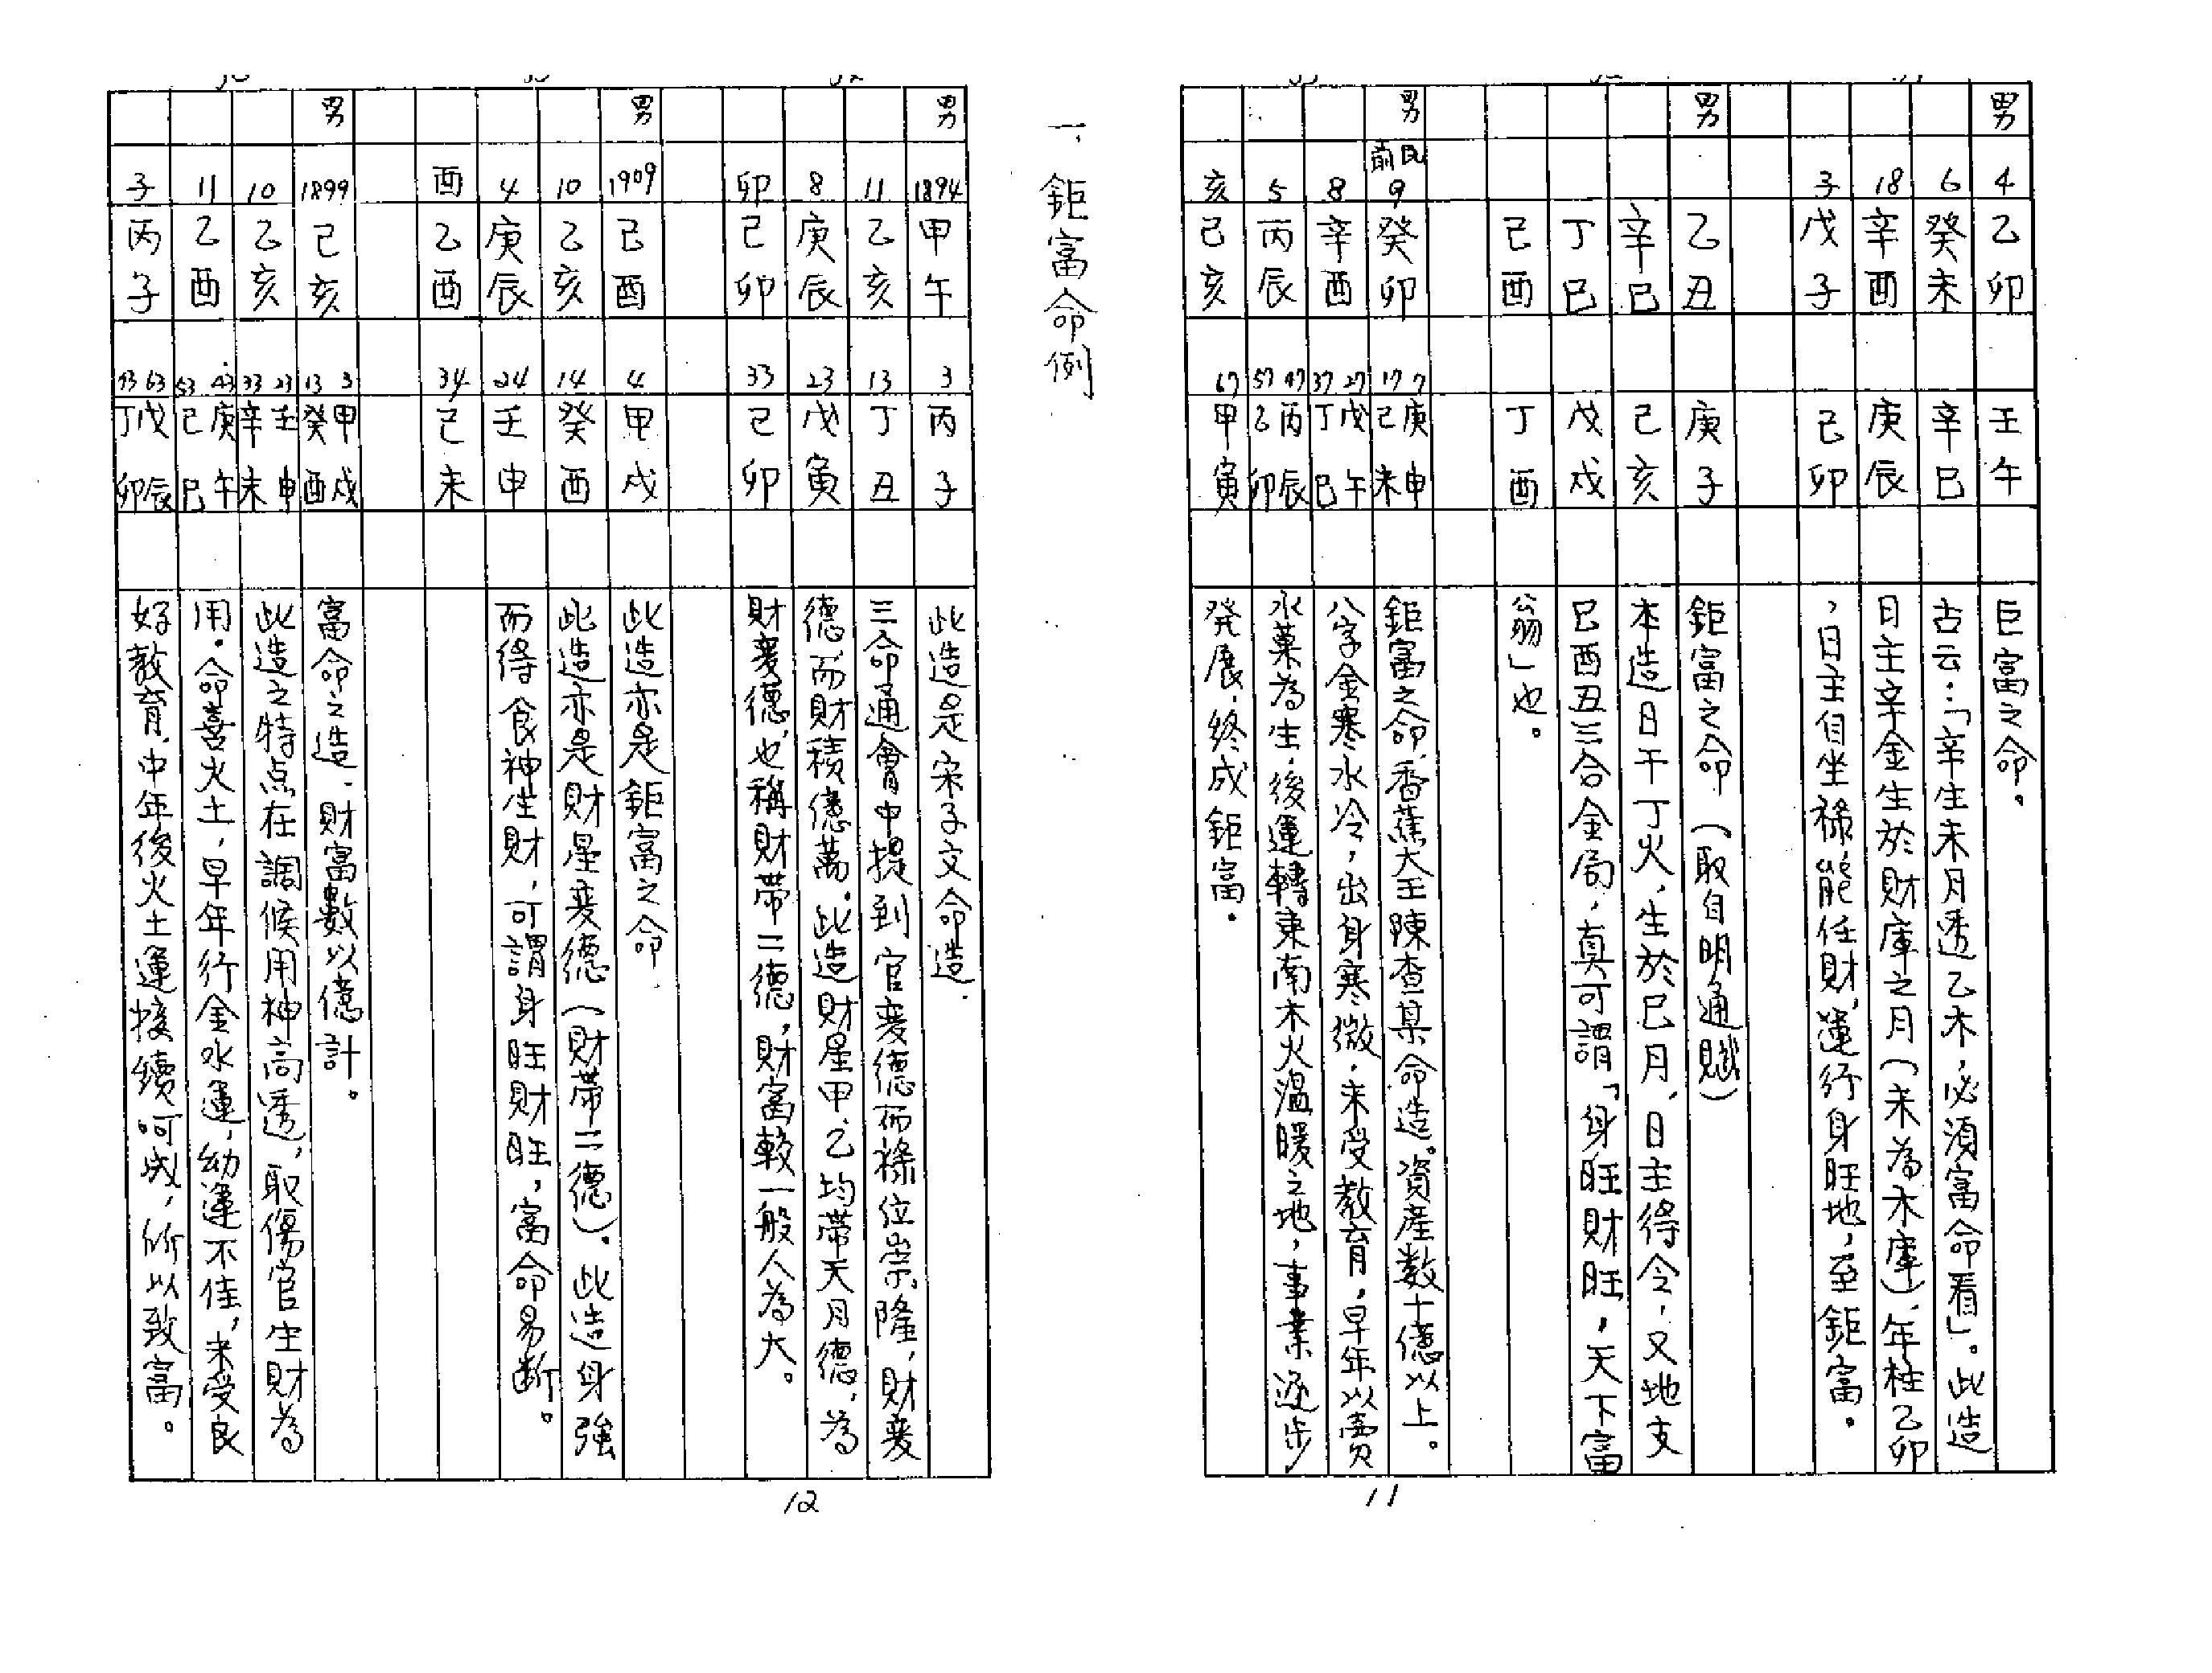 一、鉅富命例
男
4 乙卯 壬午 巨富之命。
6 癸未 辛巳 古云:「辛生未月透乙木,必須富命看」。此造
18 辛酉 庚辰 日主辛金生於財庫之月(未為木庫)、年柱乙卯
子 戊子 己卯 ,日主自坐祿,能任財,運行身旺地,至鉅富。
男
乙丑 庚子 鉅富之命(取自明通賦)
辛巳 己亥 本造日干丁火,生於巳月,日主得令,又地支
丁巳 戊戌 巳酉丑三合金局,真可謂「身旺財旺,天下富
己酉 丁酉 翁」也。
男
民前9 癸卯 7 庚申 17 己未 鉅富之命,香蕉大王陳查某命造。資産數十億以上。
8 辛酉 27 戊午 37 丁巳 八字金寒水冷,出身寒微,未受教育,早年以賣
5 丙辰 47 丙辰 57 乙卯 水菓為生,後運轉東南木火温暖之地,事業逐步
亥 己亥 67 甲寅 発展,終成鉅富。
11
男
1894 甲午 3 丙子 此造是宋子文命造.
11 乙亥 13 丁丑 三命通會中提到官変德而祿位崇隆,財変
8 庚辰 23 戊寅 德而財積億萬。此造財星甲、乙均帶天月德,為
卯 己卯 33 己卯 財変德,也稱財帶二德,財富較一般人為大。
男
1909 己酉 4 甲戌 此造亦是鉅富之命.
10 乙亥 14 癸酉 此造亦是財星変德(財帶二德)。此造身強
4 庚辰 24 壬申 而得食神生財,可謂身旺財旺,富命易断。
酉 乙酉 34 己未
男
1899 己亥 3 甲戌 13 癸酉 富命之造.財富數以億計。
10 乙亥 23 壬申 33 辛未 此造之特点在調候用神高透,取傷官生財為
11 乙酉 43 庚午 53 己巳 用。命喜火土,早年行金水運,幼運不佳,未受良
子 丙子 63 戊辰 73 丁卯 好教育,中年後火土運接續呵成,所以致富。
12